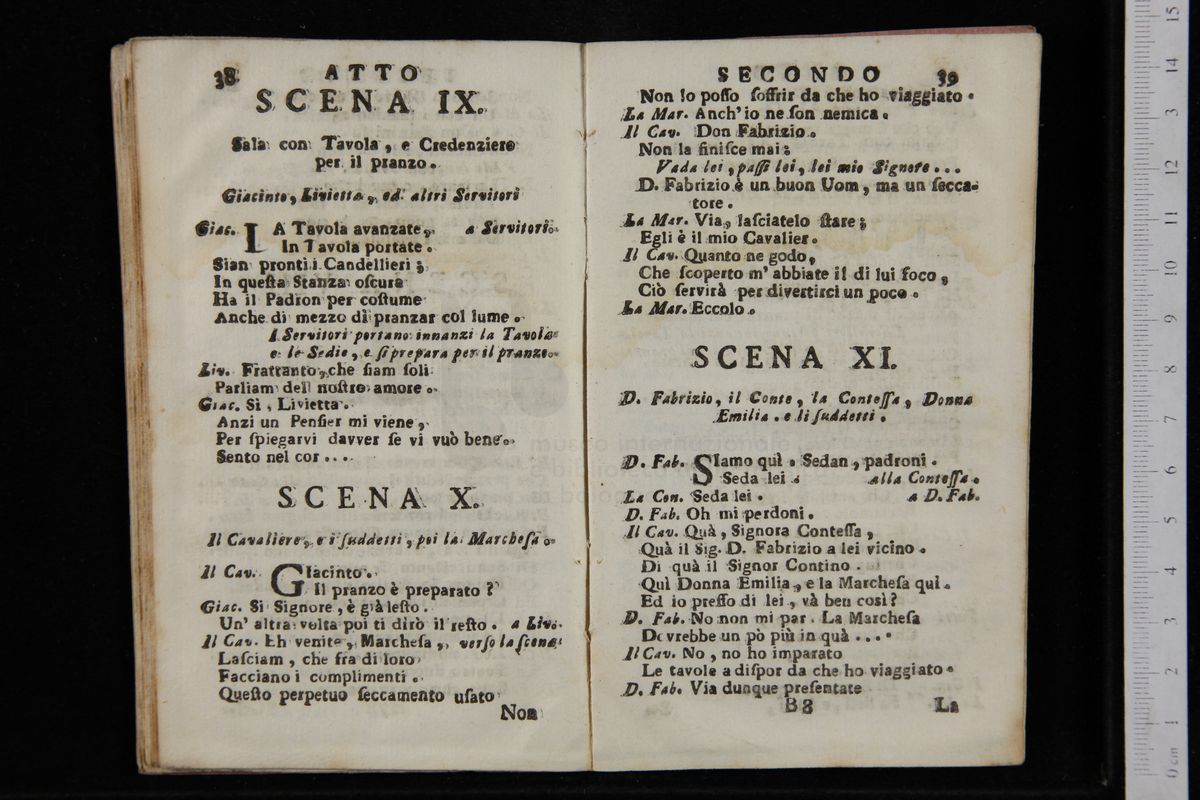 38 ATTO
SCENA IX.
Sala con Tavola, e Credenziere
per il pranzo.
Giacinto, Livietta, ed altri Servitori
Giac. LA Tavola avanzate, a Servitori.
In Tavola portate.
Sian pronti i Candellieri;
In queſta Stanza oſcura
Ha il Padron per coſtume
Anche di mezzo dì pranzar col lume.
I Servitori portano innanzi la Tavola
e le Sedie, e ſi prepara per il pranzo.
Liv. Frattanto, che ſiam ſoli
Parliam del noſtro amore.
Giac. Sì, Livietta.
Anzi un Penſier mi viene,
Per ſpiegarvi davver ſe vi vuò bene.
Sento nel cor....
SCENA X.
Il Cavaliere, e i ſuddetti, poi la Marcheſa.
Il Cav. GIacinto.
Il pranzo è preparato?
Giac. Sì Signore, è già leſto.
Un' altra volta poi ti dirò il reſto. a Liv.
Il Cav. Eh venite, Marcheſa, verſo la ſcena.
Laſciam, che fra di loro
Facciano i complimenti.
Queſto perpetuo ſeccamento uſato
Non
SECONDO 39
Non lo poſſo ſoffrir da che ho viaggiato.
La Mar. Anch'io ne ſon nemica.
Il Cav. Don Fabrizio.
Non la finiſce mai:
Vada lei, paſſi lei, lei mio Signore...
D. Fabrizio è un buon Uom, ma un ſecca-
tore.
La Mar. Via, laſciatelo ſtare;
Egli è il mio Cavalier.
Il Cav. Quanto ne godo,
Che ſcoperto m' abbiate il di lui foco,
Ciò ſervirà per divertirci un poco.
La Mar. Eccolo.
SCENA XI.
D. Fabrizio, il Conte, la Conteſſa, Donna
Emilia. e li ſuddetti.
D. Fab. SIamo quì. Sedan, padroni.
Seda lei. alla Conteſſa.
La Con. Seda lei. a D. Fab.
D. Fab. Oh mi perdoni.
Il Cav. Quà, Signora Conteſſa,
Quà il Sig. D. Fabrizio a lei vicino.
Di quà il Signor Contino.
Quì Donna Emilia, e la Marcheſa quì.
Ed io preſſo di lei, và ben così?
D. Fab. No non mi par. La Marcheſa
Dovrebbe un pò più in quà....
Il Cav. No, no ho imparato
Le tavole a diſpor da che ho viaggiato.
D. Fab. Via dunque preſentate
B8 La